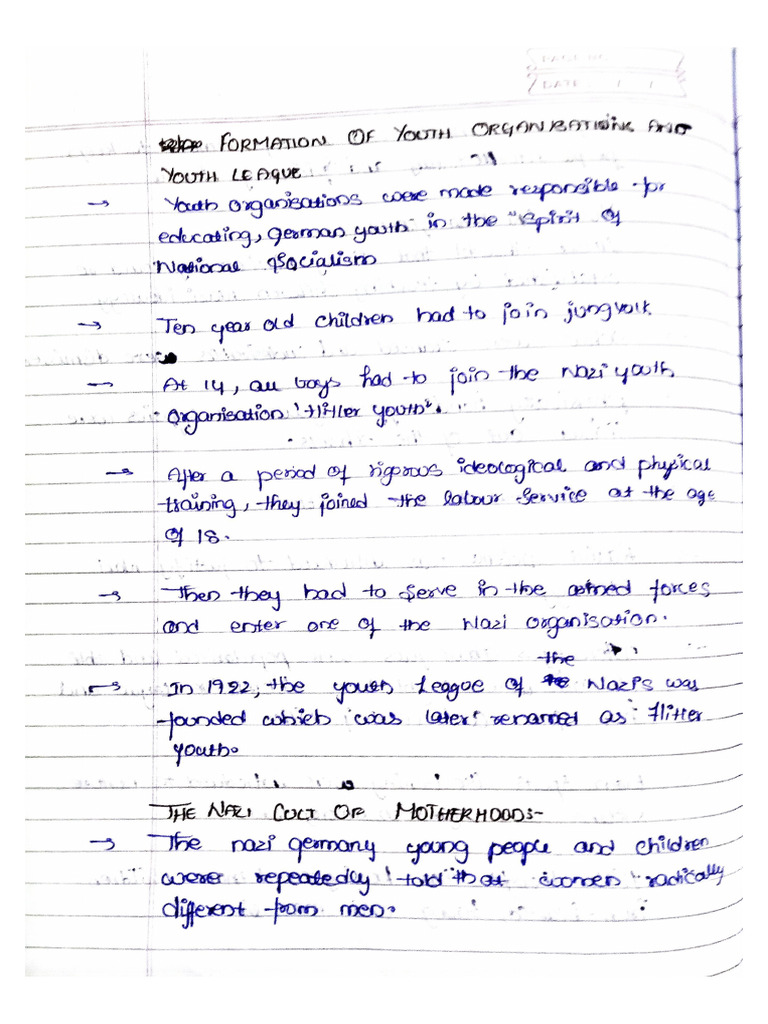 PAGE No.
DATE / /
FORMATION OF YOUTH ORGANISATIONS AND
YOUTH LEAGUE
→ Youth organisations were made responsible for
educating, german youth in the "spirit of
National Socialism
→ Ten year old children had to join jungvolk.
→ At 14, all boys had to join the Nazi youth
organisation 'Hitler youth".
→ After a period of rigorous ideological and physical
training, they joined the labour service at the age
of 18.
→ Then they had to serve in the armed forces
and enter one of the Nazi organisation.
→ In 1922, the youth League of the Nazis was
founded which was later renamed as Hitler
youth.
THE NAZI CULT OF MOTHERHOODS:-
→ The nazi germany young people and children
were repeatedly told that women radically
different from men.